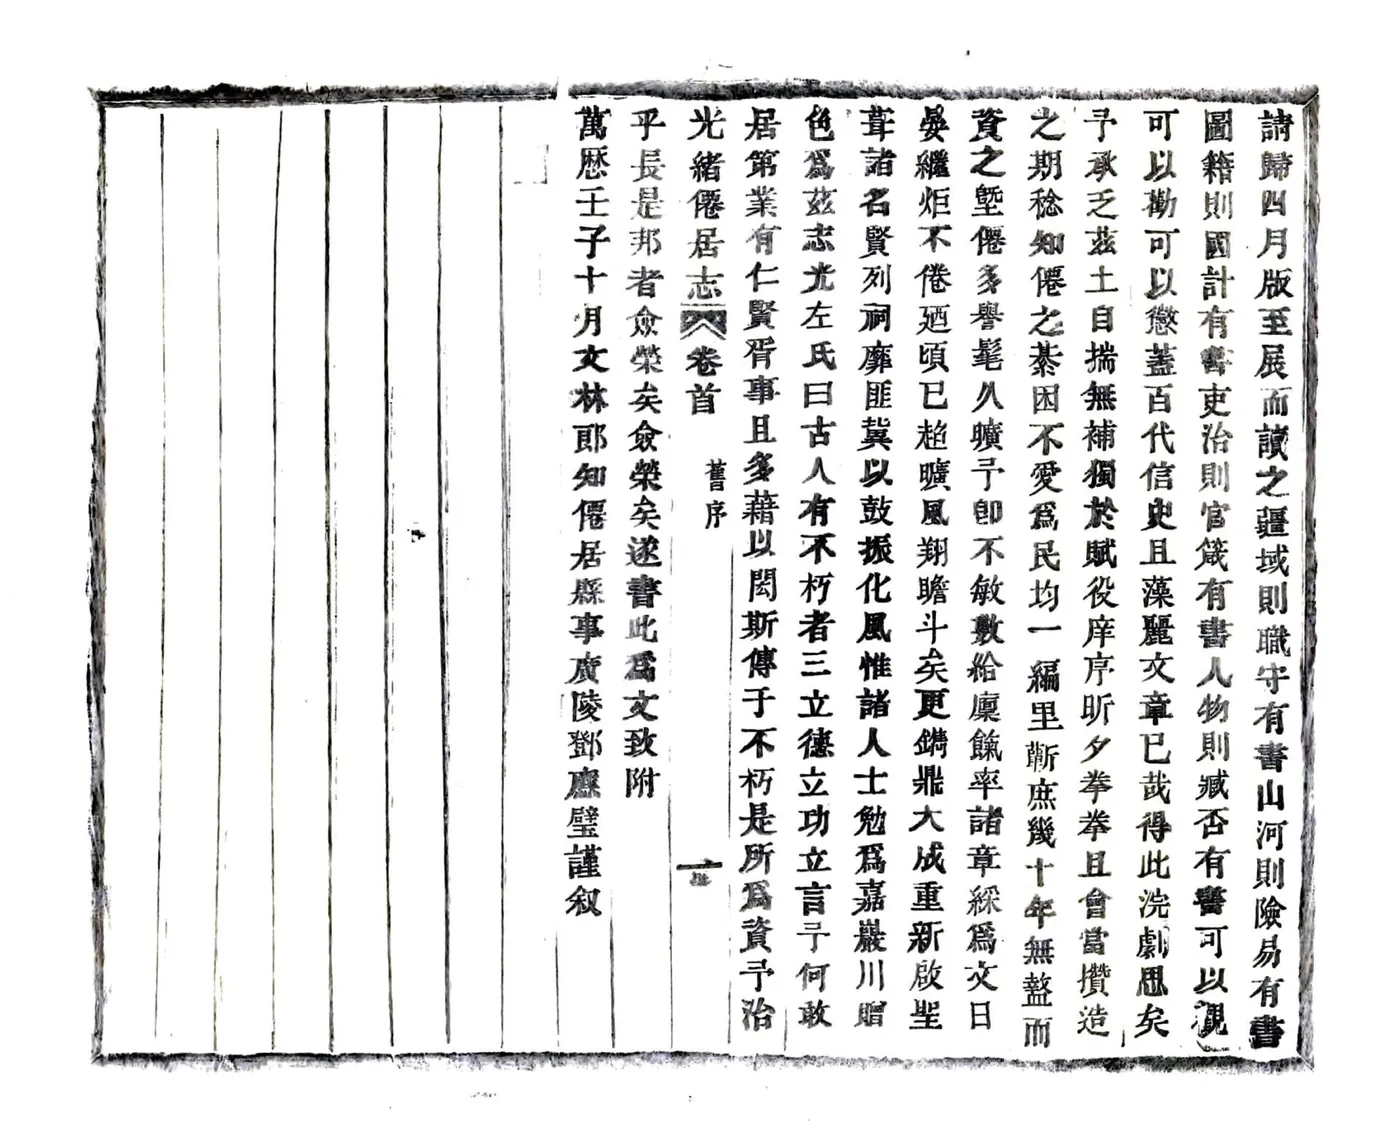 請歸四月版至展而讀之疆域則職守有書山河則險易有書
圖籍則國計有書吏治則官箴有書人物則臧否有書可以觀
可以勸可以懲蓋百代信史且藻麗文章已哉得此浣劇思矣
予承乏茲土自揣無補獨於賦役庠序昕夕拳拳且會當攢造
之期稔知僊之綦困不愛爲民均一編里蘄庶幾十年無盭而
資之塈僊多譽髦久曠予卽不敏敷給廩餼率諸章綵爲文日
晏繼炬不倦廼頃已趂曠風翔瞻斗矣更鐫鼎大成重新啟聖
葺諸名賢列祠靡匪冀以鼓振化風惟諸人士勉爲嘉巖川贈
色爲茲志光左氏曰古人有不朽者三立德立功立言予何敢
居第業有仁賢胥事且多藉以閎斯傳于不朽是所爲資予治
光緒僊居志 卷首 舊序
乎長是邦者僉榮矣僉榮矣遂書此爲文致附
萬歷壬子十月文林郎知僊居縣事廣陵鄧應璧謹叙